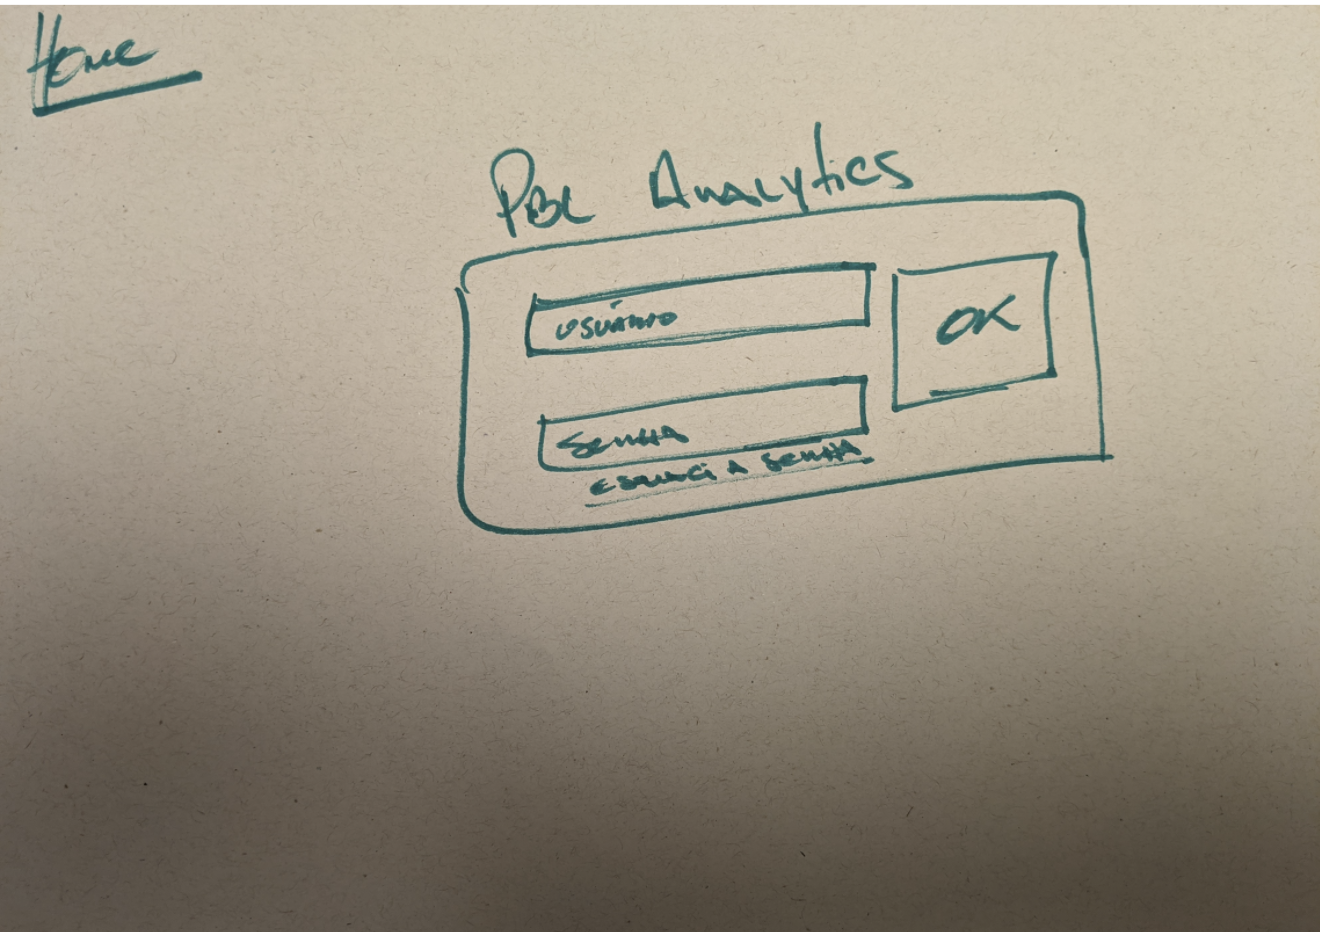 Home
PBL Analytics
USUÁRIO
OK
SENHA
ESQUECI A SENHA